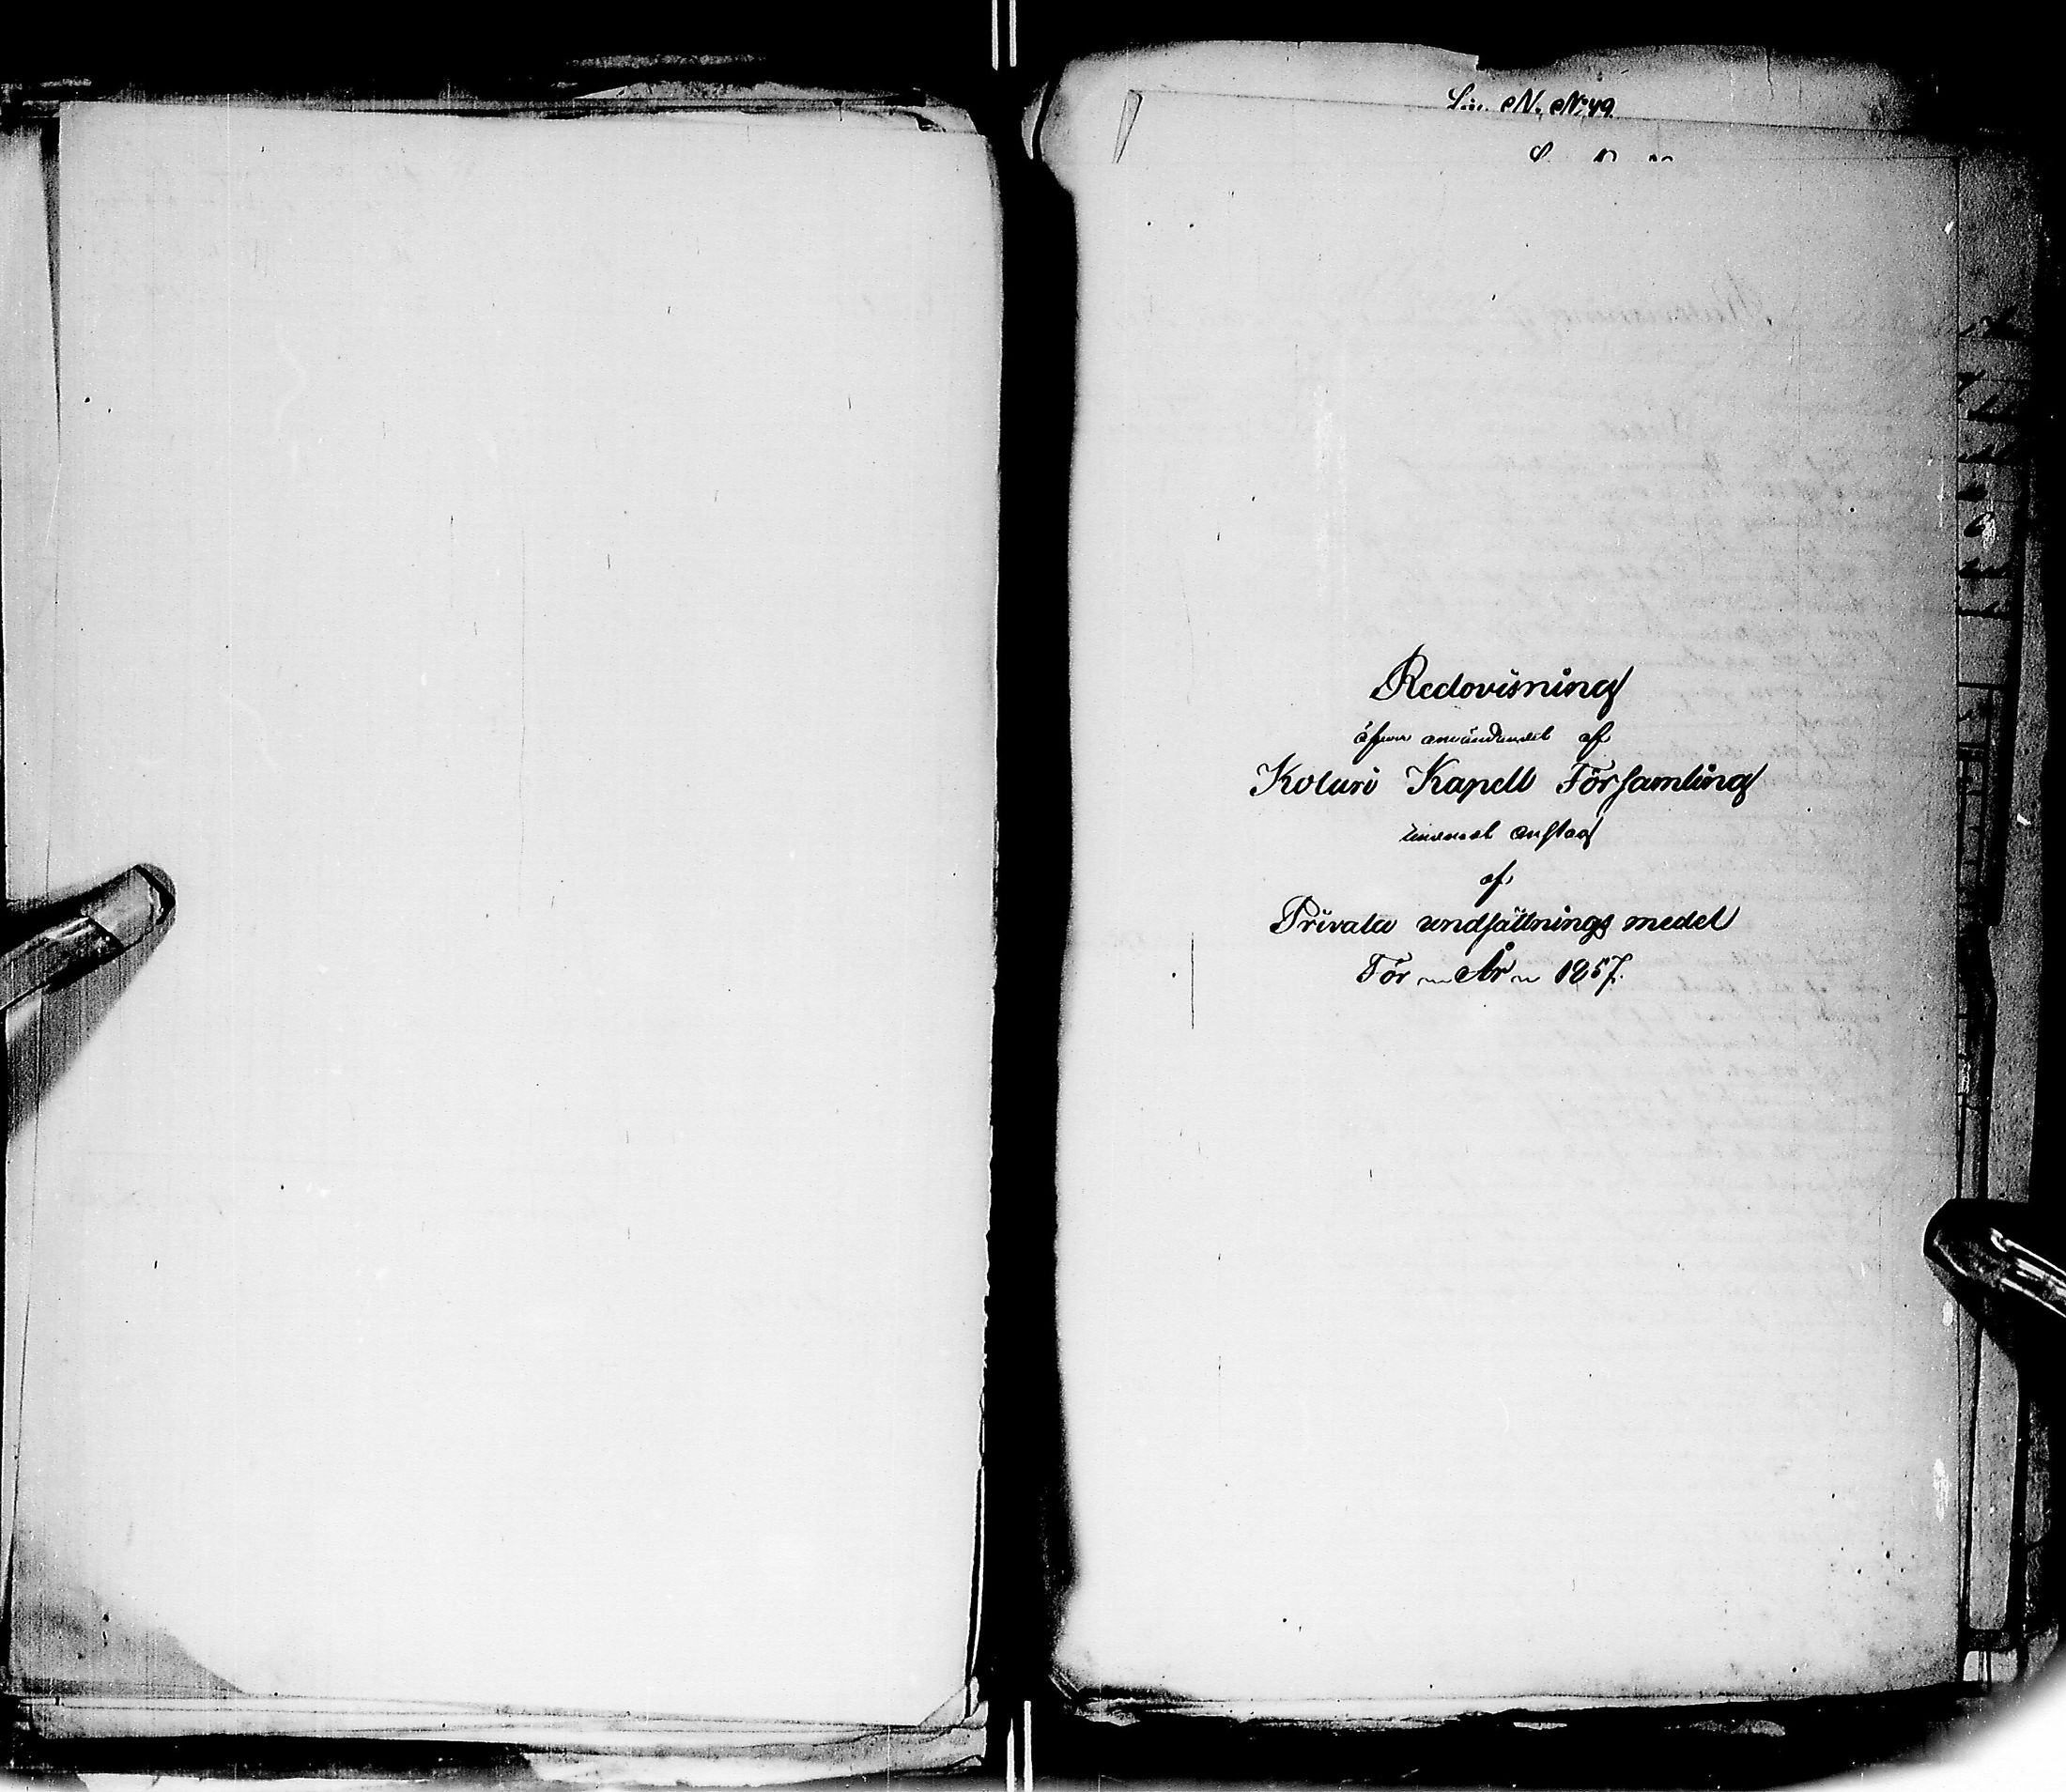 Litt. N. No 49.
Redovisning
öfver användandet af
Kolari Kapell Församling
anslag
af
Privata undsättnings medel
För År 1857.